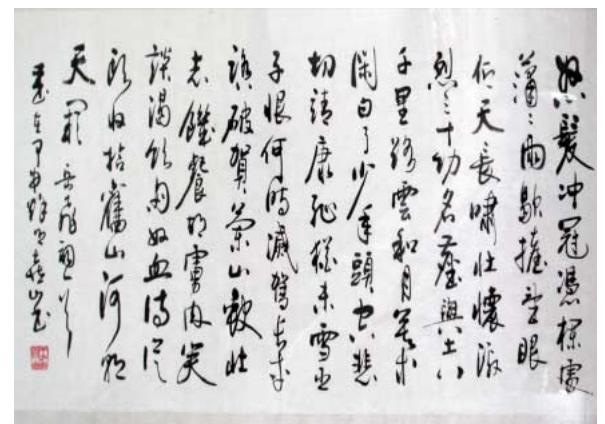 怒髮冲冠憑欄處
瀟〻雨歇擡望眼
仰天長嘯壯懷激
烈三十功名塵與土八
千里路雲和月莫等
閑白了少年頭空悲
切靖康恥猶未雪臣
子恨何時滅駕長車
踏破賀蘭山缺壯
志饑餐胡虜肉笑
談渴飲匈奴血待從
頭收拾舊山河朝
天闕 岳飛詞